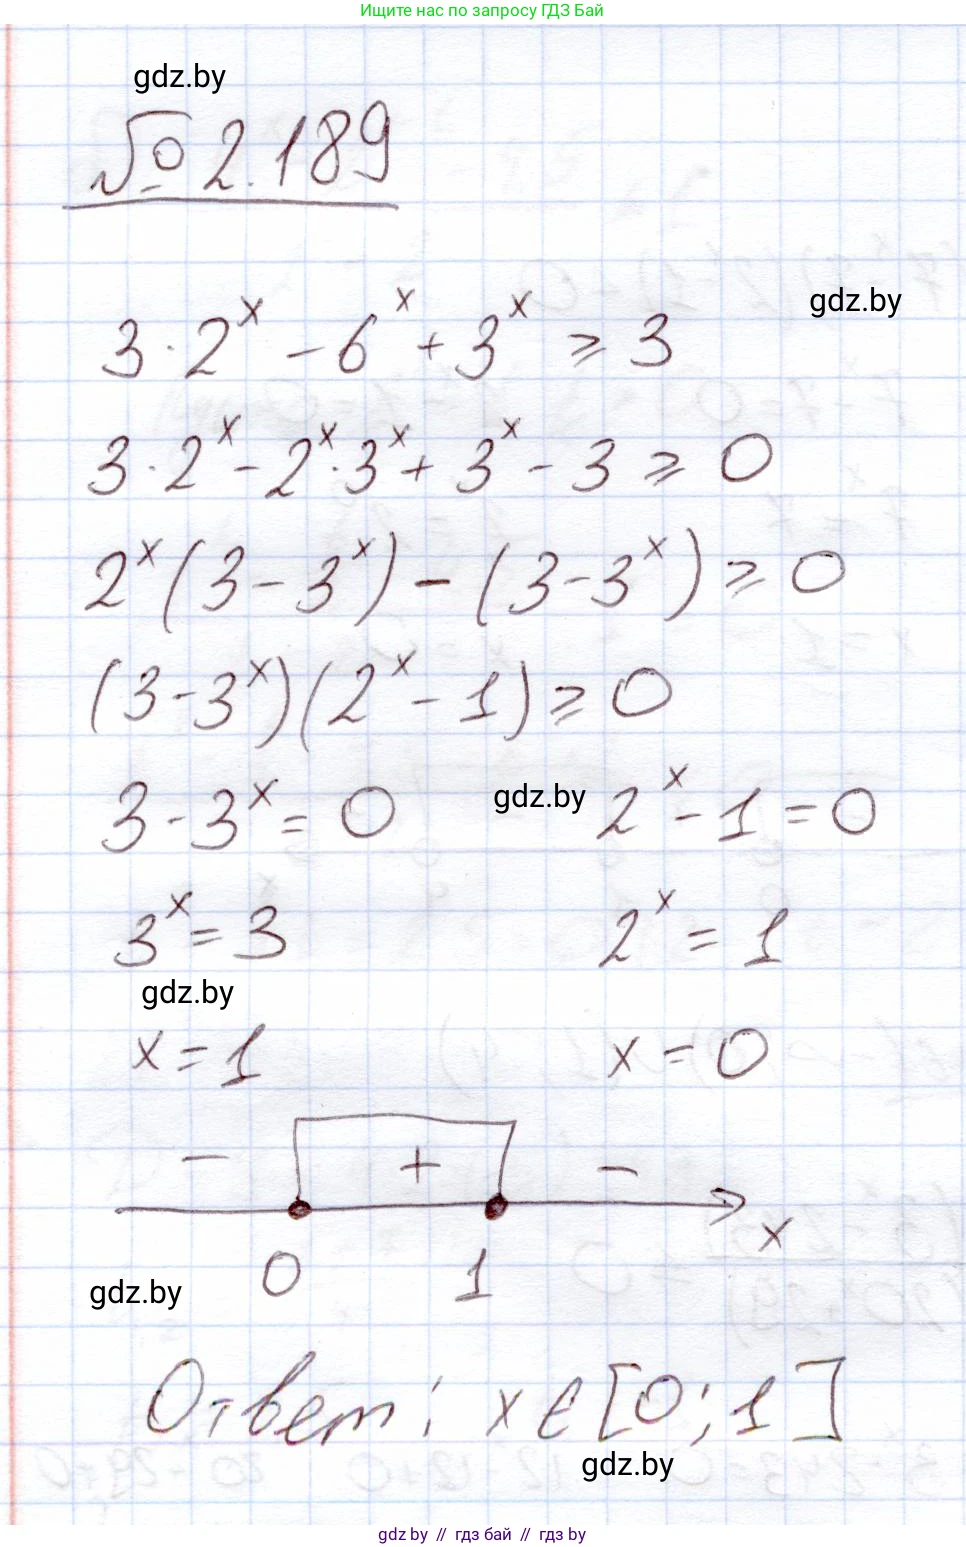 Ищите нас по запросу ГДЗ Бай
gdz.by
№ 2.189
gdz.by
3 · 2^x - 6^x + 3^x ⩾ 3
3 · 2^x - 2^x · 3^x + 3^x - 3 ⩾ 0
2^x (3 - 3^x) - (3 - 3^x) ⩾ 0
(3 - 3^x)(2^x - 1) ⩾ 0
3 - 3^x = 0 gdz.by 2^x - 1 = 0
3^x = 3 2^x = 1
gdz.by
x = 1 x = 0
- + -
x
0 1
gdz.by
Ответ: x ∈ [0; 1]
gdz.by
gdz by // гдз бай // гдз by